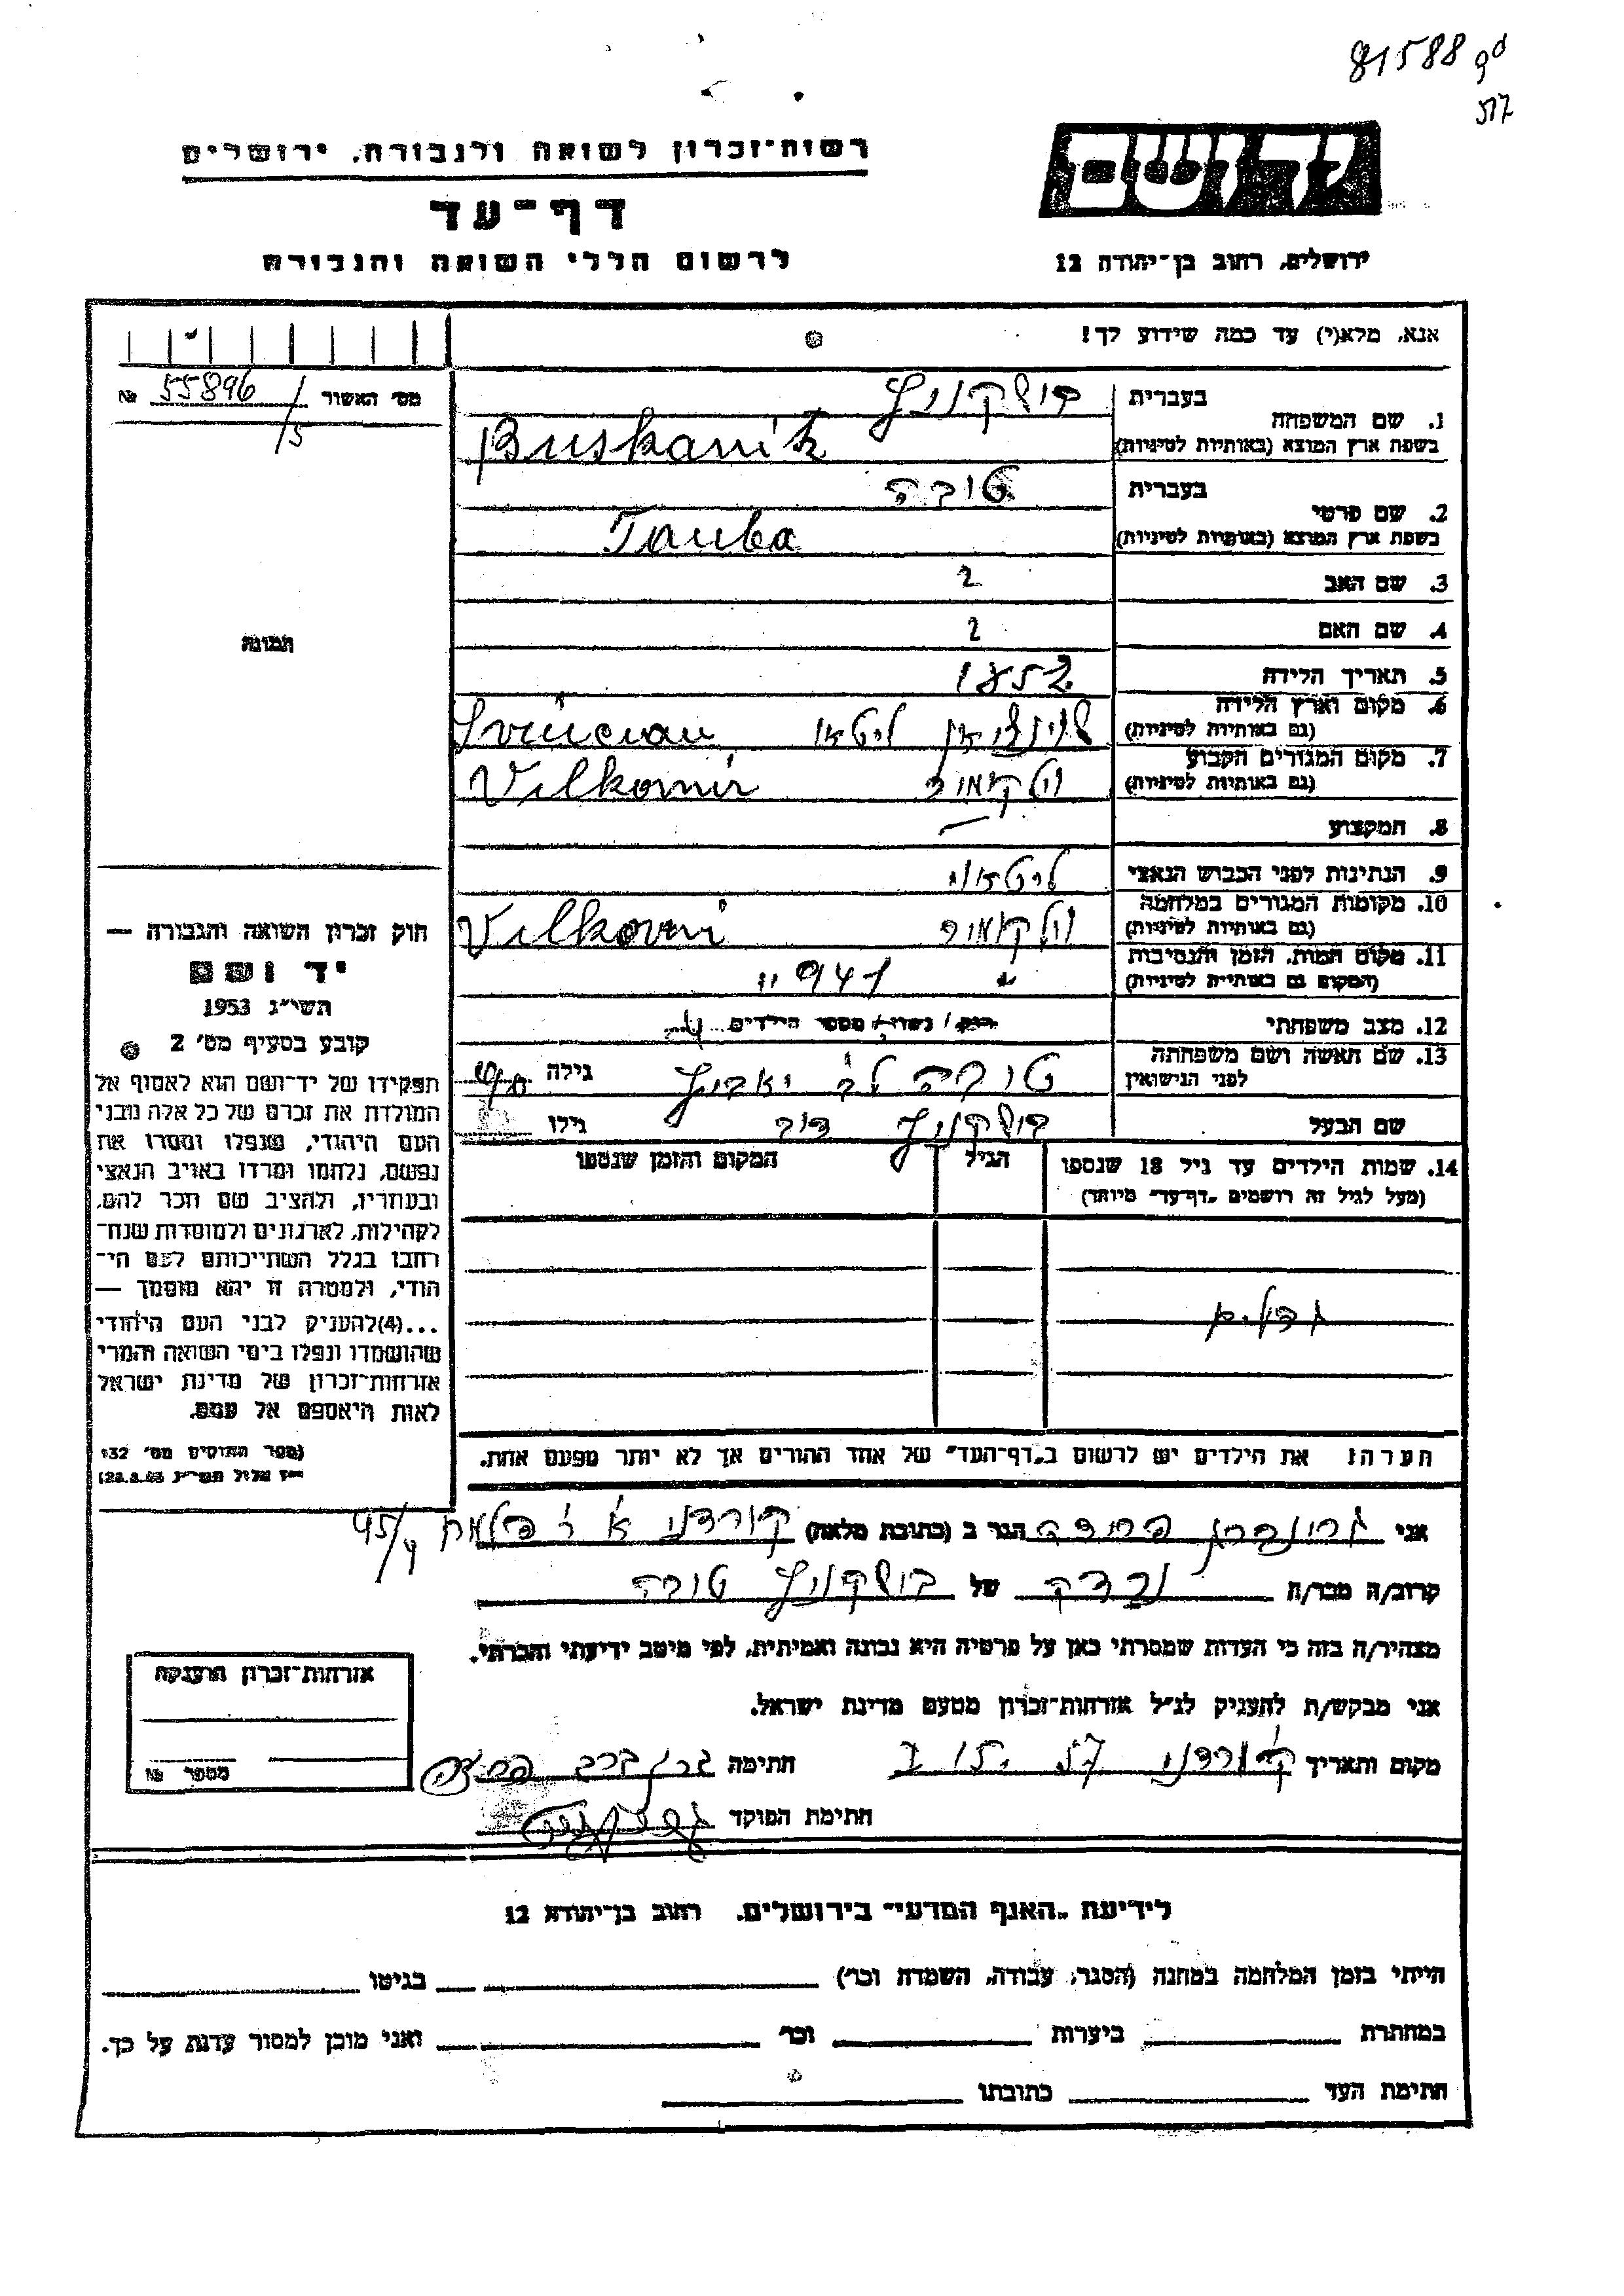 81588
517
רשות־זכרון לשואה ולגבורה, ירושלים
יד ושם
דף־עד
לרשום חללי השואה והגבורה
ירושלים, רחוב בן־יהודה 12
אנא, מלא(י) עד כמה שידוע לך!
מס׳ האשור № 55896/5
1. שם המשפחה
בעברית בושקניץ
בשפת ארץ המוצא (באותיות לטיניות) Buskanitz
2. שם פרטי
בעברית טובה
בשפת ארץ המוצא (באותיות לטיניות) Tauba
3. שם האב ?
4. שם האם ?
תמונה
5. תאריך הלידה 1852
6. מקום וארץ הלידה
(גם באותיות לטיניות) ליטא Svencian
7. מקום המגורים הקבוע
(גם באותיות לטיניות) וילקומיר Vilkomir
8. המקצוע —
9. הנתינות לפני הכבוש הנאצי ליטאית
10. מקומות המגורים במלחמה
(גם באותיות לטיניות) וילקומיר Vilkomi
11. מקום המות, הזמן והנסיבות
(המקום גם באותיות לטיניות) " 1941 "
12. מצב משפחתי רווק / נשוי / מספר הילדים 4
13. שם האשה ושם משפחתה
לפני הנישואין טובה לב׳ גילה
שם הבעל בושקניץ דוב גילו
14. שמות הילדים עד גיל 18 שנספו
(מעל לגיל זה רושמים „דף־עד״ מיוחד)
הגיל
המקום והזמן שנספו
גדולים
הערה: את הילדים יש לרשום ב„דף־העד״ של אחד ההורים אך לא יותר מפעם אחת.
חוק זכרון השואה והגבורה —
יד ושם
תשי״ג 1953
קובע בסעיף מס׳ 2
תפקידו של יד־ושם הוא לאסוף אל
המולדת את זכרם של כל אלה מבני
העם היהודי, שנפלו ומסרו את
נפשם, נלחמו ומרדו באויב הנאצי
ובעוזריו, ולהציב שם וזכר להם,
לקהילות, לארגונים ולמוסדות שנח־
רבו בגלל השתייכותם לעם הי־
הודי, ולמטרה זו יהא מוסמך —
...(4) להעניק לבני העם היהודי
שהושמדו ונפלו בימי השואה והמרי
אזרחות־זכרון של מדינת ישראל
לאות היאספם אל עמם.
(ספר החוקים מס׳ 132
י״ז אלול תשי״ג 28.8.53)
אני גרינברג פרידה הגר ב (כתובת מלאה) קורדני א׳ 45/4
קרוב/ה מכר/ה נכדה של בושקניץ טובה
מצהיר/ה בזה כי העדות שמסרתי כאן על פרטיה היא נכונה ואמיתית, לפי מיטב ידיעתי והכרתי.
אני מבקש/ת להעניק לנ״ל אזרחות־זכרון מטעם מדינת ישראל.
מקום ותאריך קורדני חתימה גרינברג פרידה
חתימת הפוקד
אזרחות־זכרון הוענקה
מספר №
לידיעת „האגף המדעי״ בירושלים, רחוב בן־יהודה 12
הייתי בזמן המלחמה במחנה (הסגר, עבודה, השמדה וכו׳) בגיטו
במחתרת ביערות וכו׳ ואני מוכן למסור עדות על כך.
חתימת העד כתובתו